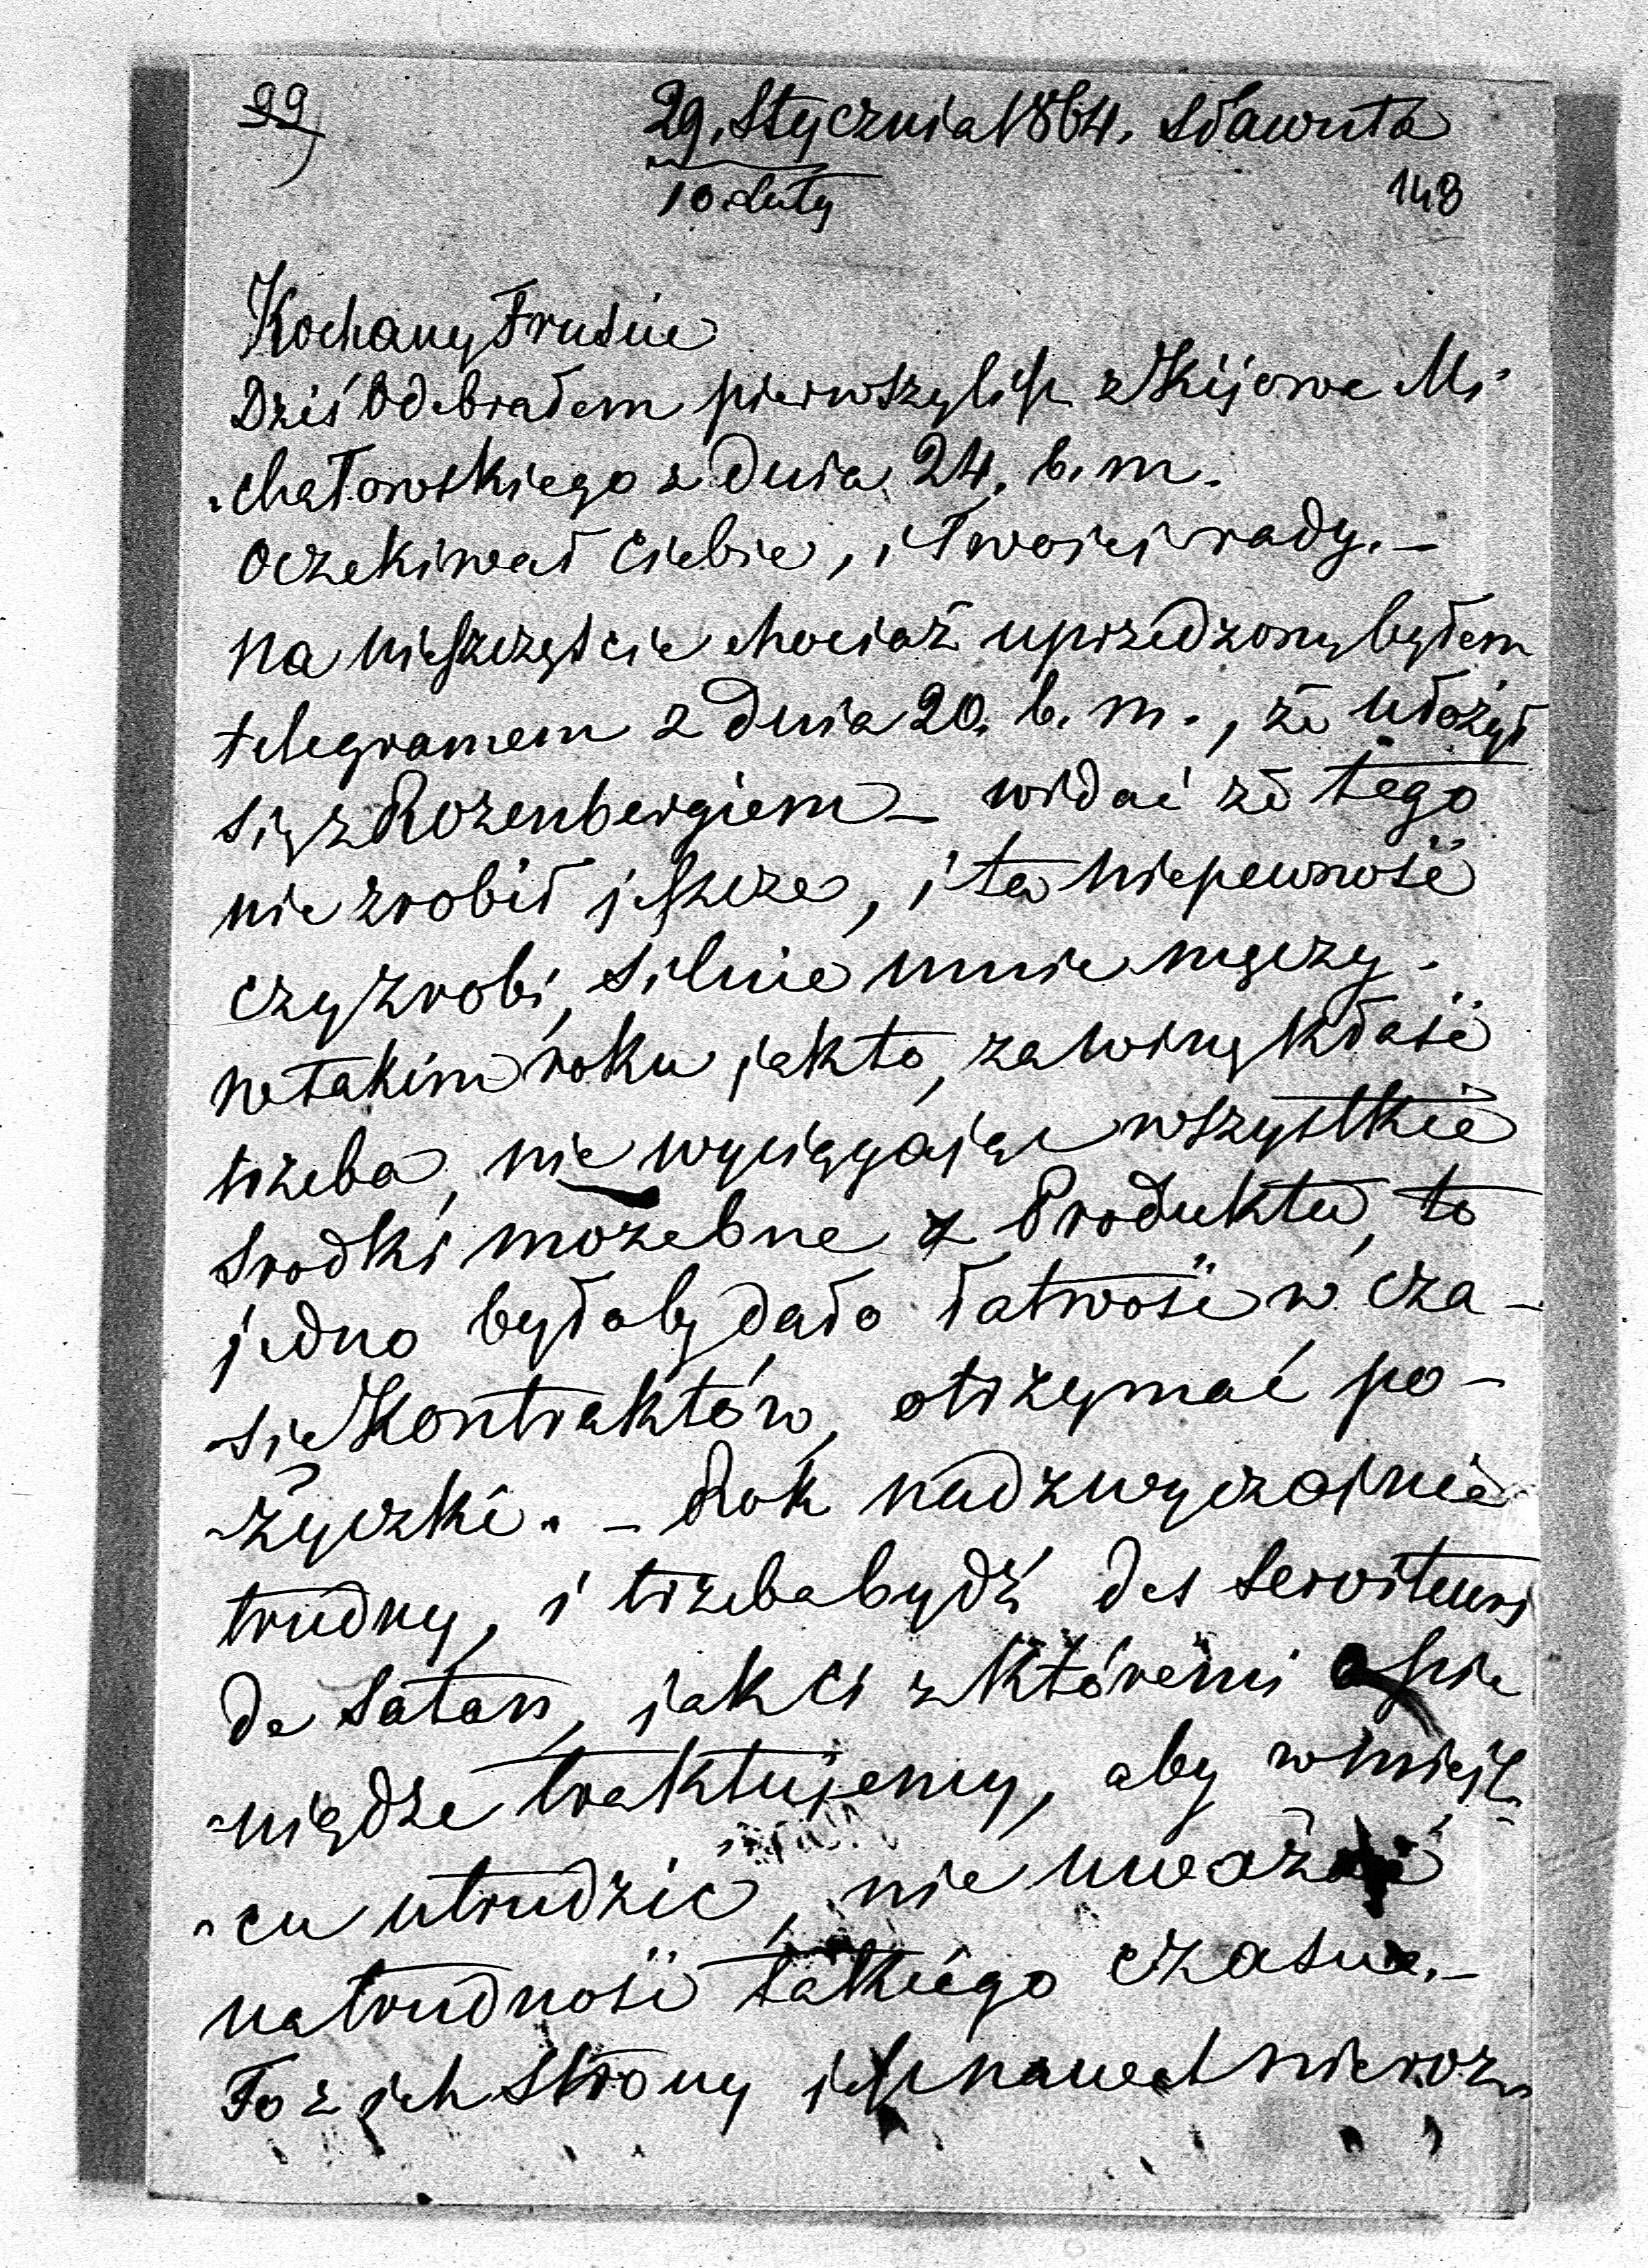 99
29. Stycznia 1864. Sławuta
10. Luty
148
Kochany Frusiu
Dziś Odebrałem pierwszy list z Kijowa Mi-
-chałowskiego z Dnia 24. b. m.
Oczekiwał Ciebie, i Twoiei rady. –
na nieszczęście chociaż uprzedzony byłem
telegramem z Dnia 20. b. m., że ułożył
się z Rozenbergiem – widać że tego
nie zrobił jeszcze, i ta niepewność
czy zrobi, silnie mnie męczy.
w takim roku jak to, za winę kłaść
trzeba, nie wyciągaiąc wszystkie
srodki możebne z Produktu, to
jedno byłoby dało łatwość w cza-
-sie Kontraktów, otrzymać po-
-życzki. – Rok nadzwyczajnie
trudny, i trzeba bydź des serviteurs
de Satan, jak ci z któremi o pie
-niądze traktujemy, aby w miejs-
-cu utrudzić, nie uważać
na trudność takiego czasu. –
To z jich strony jest nawet nieroz-